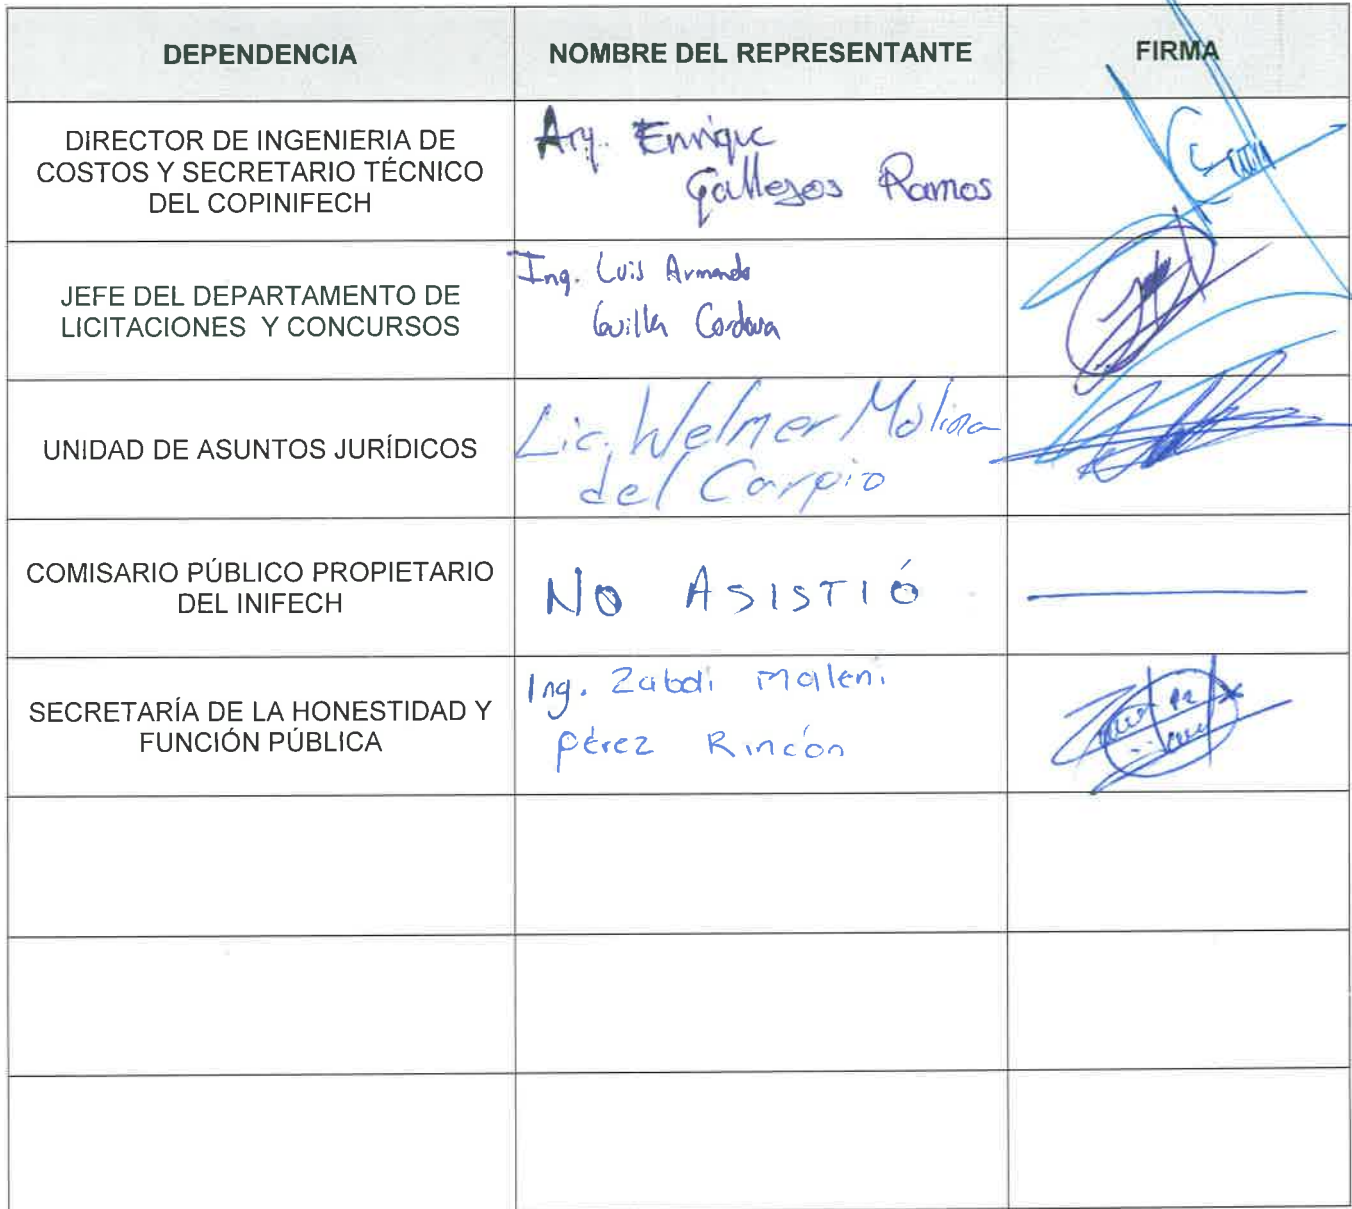 DEPENDENCIA
NOMBRE DEL REPRESENTANTE
FIRMA
DIRECTOR DE INGENIERIA DE
COSTOS Y SECRETARIO TÉCNICO
DEL COPINIFECH
Arq. Enrique
Gallegos Ramos
JEFE DEL DEPARTAMENTO DE
LICITACIONES Y CONCURSOS
Ing. Luis Armando
Cordova
UNIDAD DE ASUNTOS JURÍDICOS
Lic. Welmer Molina
del Carpio
COMISARIO PÚBLICO PROPIETARIO
DEL INIFECH
NO ASISTIÓ
SECRETARÍA DE LA HONESTIDAD Y
FUNCIÓN PÚBLICA
Ing. Zabdi Maleni
Pérez Rincón